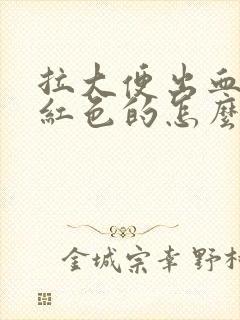 拉大便出血
紅色的怎麼
金城宗幸野村